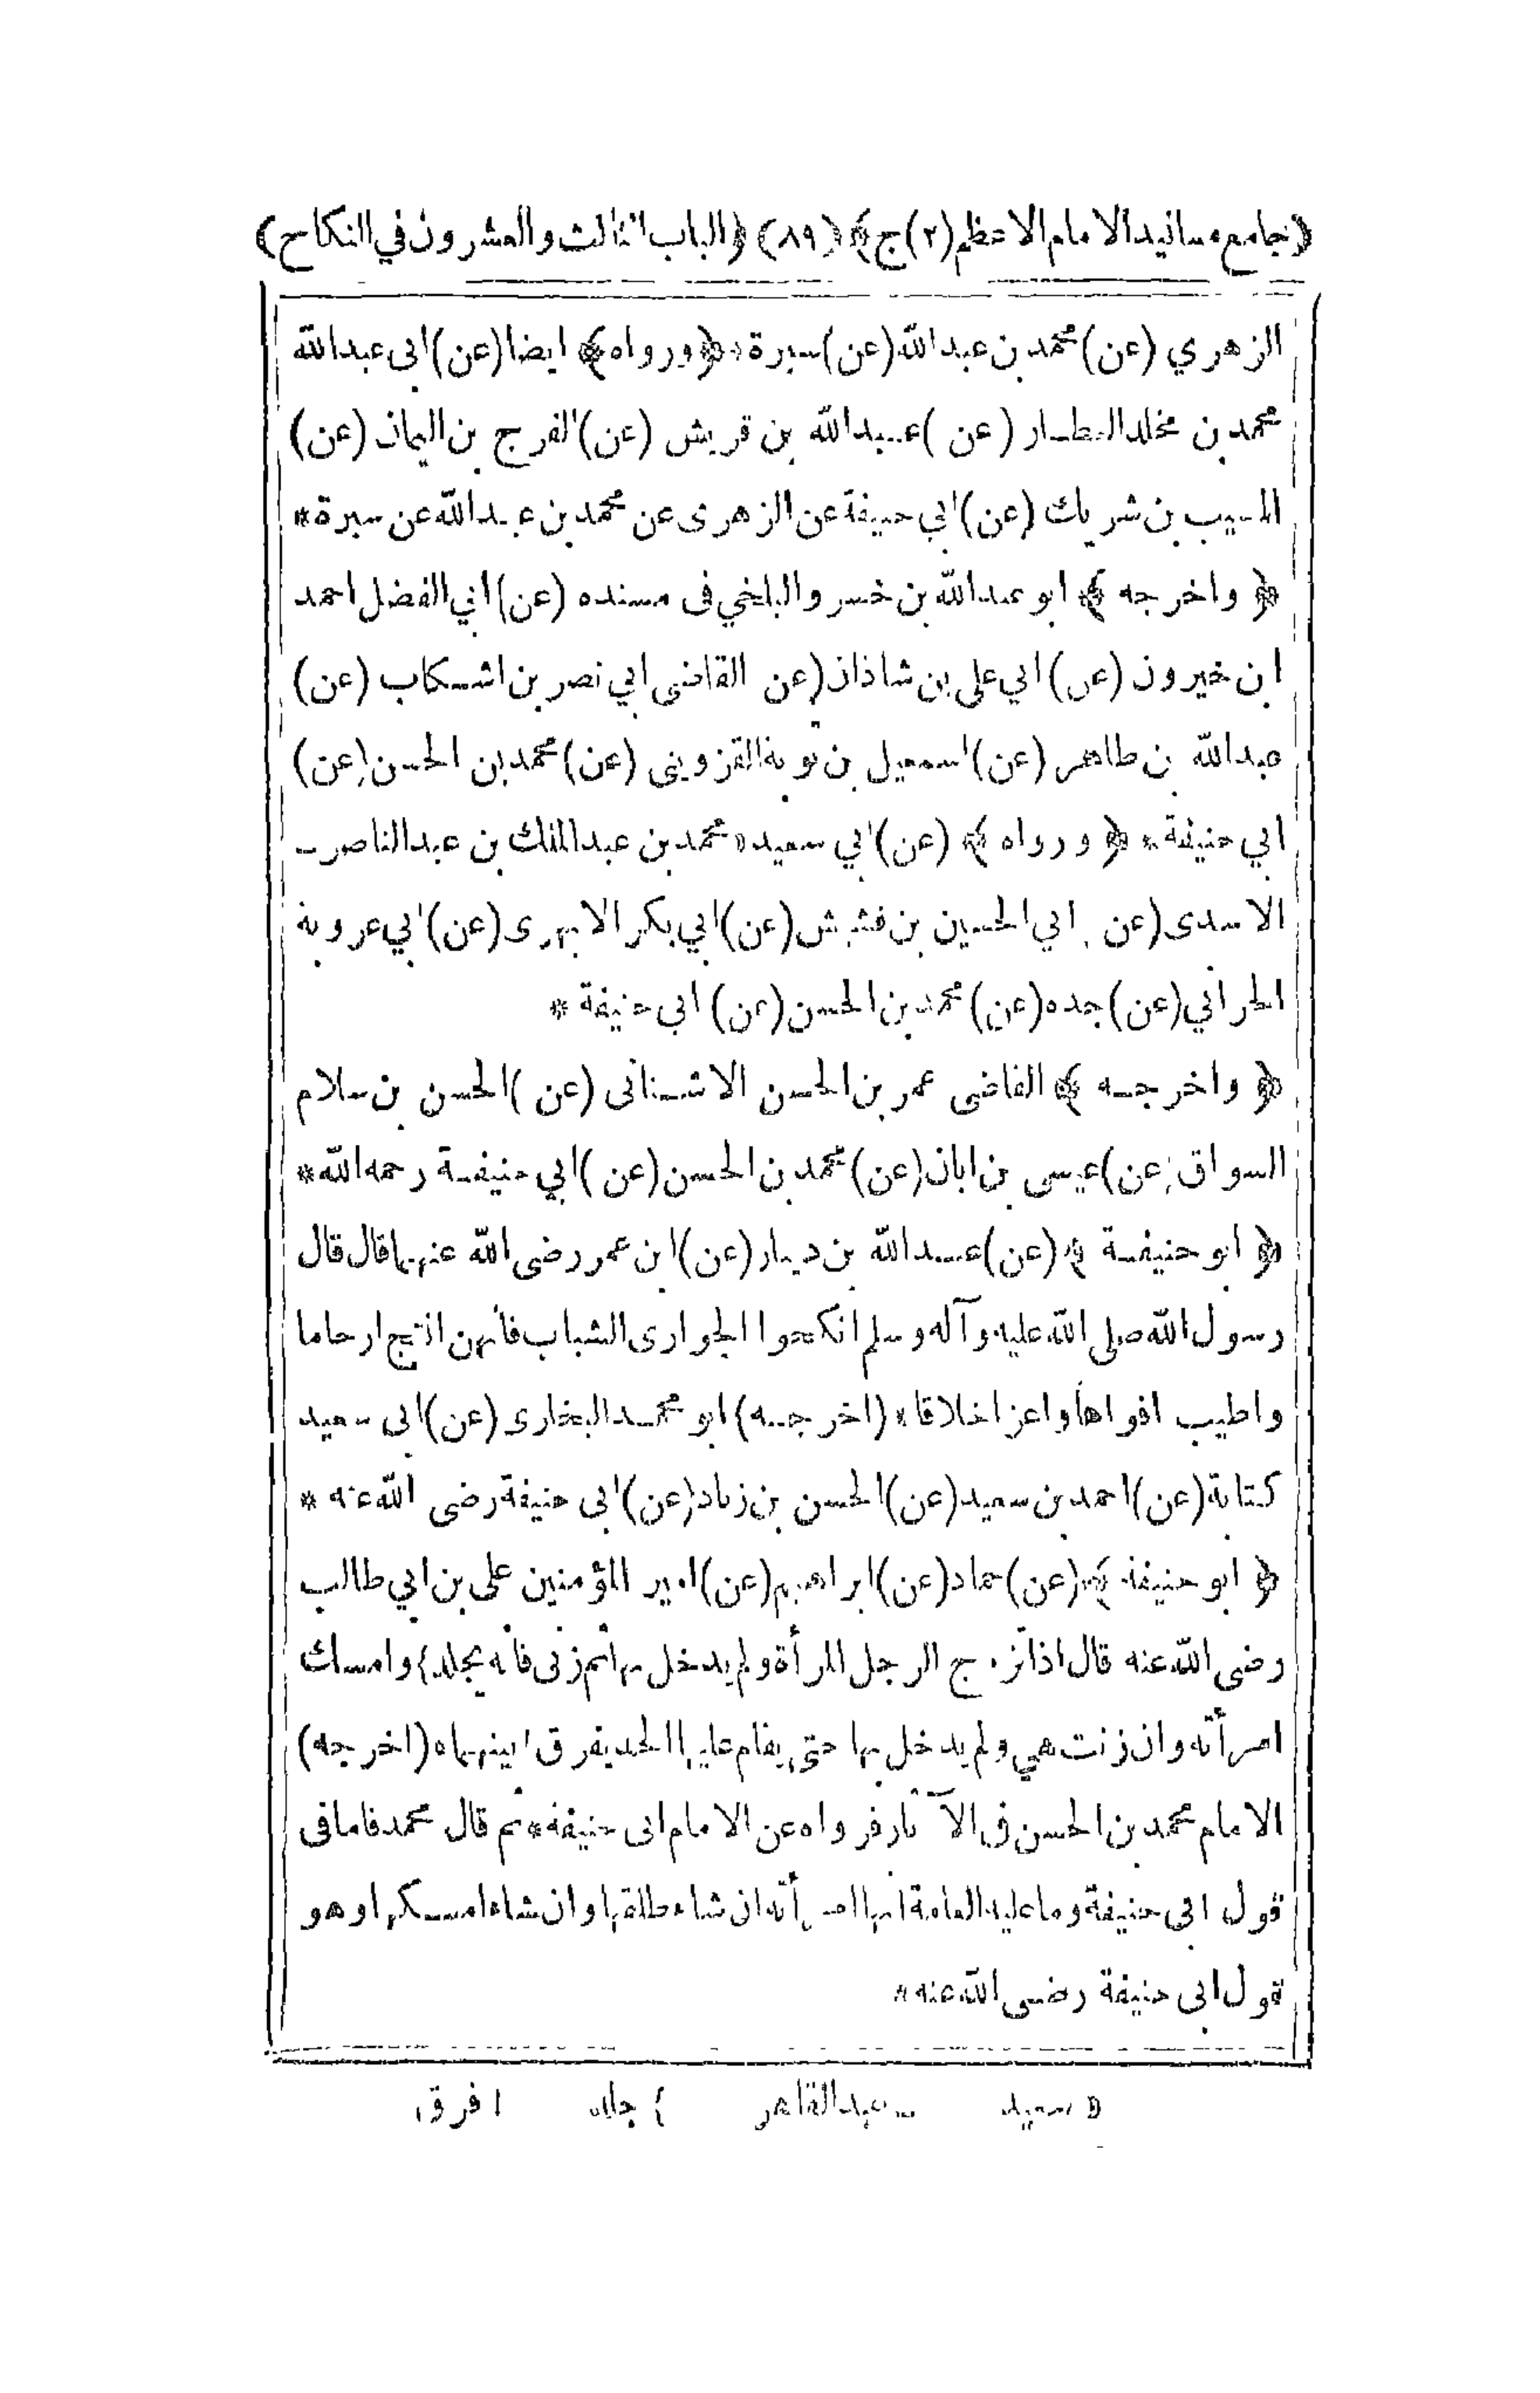 ﴿جامع مسانيد الامام الاعظم (٢) ج﴾ (٨٩) ﴿الباب الثالث والعشرون في النكاح﴾
الزهري (عن) محمد بن عبدالله (عن) سبرة * ﴿ورواه﴾ ايضا (عن) ابى عبدالله
محمد بن مخلد العطار (عن) عبيدالله بن قريش (عن) الفرج بن اليمان (عن)
المسيب بن شريك (عن) ابي حنيفة عن الزهرى عن محمد بن عبدالله عن سبرة *
﴿واخرجه﴾ ابو عبدالله بن خسرو البلخي فى مسنده (عن) ابي الفضل احمد
ابن خيرون (عن) ابي على بن شاذان (عن القاضى ابي نصر بن اشكاب (عن)
عبدالله بن طاهر (عن) اسمعيل بن توبة القزوينى (عن) محمد بن الحسن (عن)
ابي حنيفة * ﴿ورواه﴾ (عن) ابي سعيد ٥ محمد بن عبدالملك بن عبدالناصر ــ
الاسدى (عن) ابي الحسين بن قشيش (عن) ابي بكر الابهرى (عن) ابي عروبة
الحراني (عن) جده (عن) محمد بن الحسن (عن) ابى حنيفة *
﴿واخرجه﴾ القاضى عمر بن الحسن الاشنانى (عن) الحسن بن سلام
السواق (عن) عيسى بن ابان (عن) محمد بن الحسن (عن) ابي حنيفة رحمه الله *
﴿ابو حنيفة﴾ (عن) عبدالله بن دينار (عن) ابن عمر رضى الله عنهما قال قال
رسول الله صلى الله عليه وآله وسلم انكحوا الجوارى الشباب فانهن انتج ارحاما
واطيب افواها واعز اخلاقا * (اخرجه) ابو محمد البخارى (عن) ابى سعيد
كتابة (عن) احمد بن سعيد (عن) الحسن بن زياد (عن) ابى حنيفة رضى الله عنه *
﴿ابو حنيفة﴾ (عن) حماد (عن) ابراهيم (عن) امير المؤمنين على بن ابي طالب
رضى الله عنه قال اذا تزوج الرجل المرأة ولم يدخل بها ثم زنى فانه يجلد ٤ وامسك
امرأته وان زنت هي ولم يدخل بها حتى يقام عليها الحد يفرق ١ بينهما * (اخرجه)
الامام محمد بن الحسن فى الآثار فرواه عن الامام ابى حنيفة * ثم قال محمد فاما فى
قول ابى حنيفة وما عليه العامة انها امرأته ان شاء طلقها وان شاء امسكها وهو
قول ابى حنيفة رضى الله عنه *
٥ سعيد ــ عبدالقاهر ٤ جلد ١ فرق